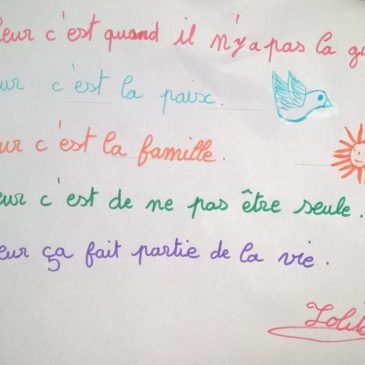 leur c'est quand il n'y a pas la gu
ur c'est la paix.
ur c'est la famille.
eur c'est de ne pas être seule.
eur ça fait partie de la vie.
Lolit